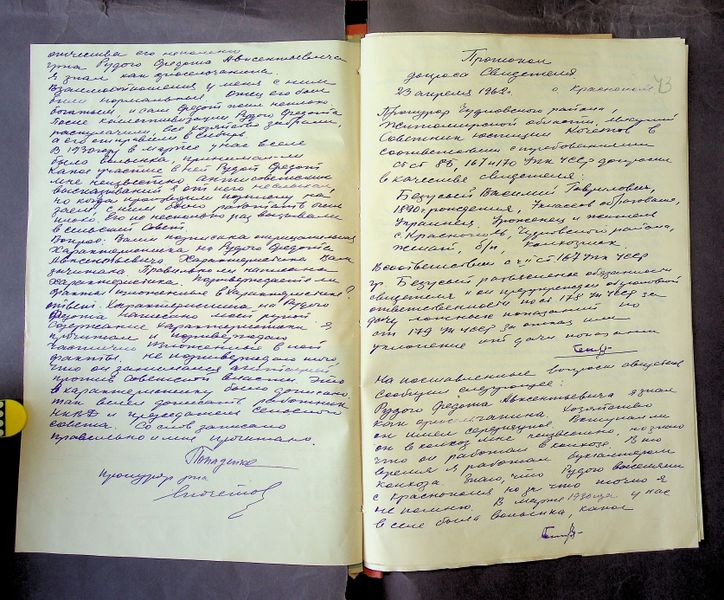 отчества его не помню
гр-на Рудого Федота Авксентьевича
я знал как односельчанина.
Взаимоотношения у меня с ними
были нормальные. Отец его был
богатым и сам Федот жил неплохо.
После коллективизации Рудого Федота
раскулачили, всё хозяйство забрали,
а его отправили в север.
В 1930 году в марте у нас в селе
была волынка, принимали
Какое участие в ней Рудой Федот
мне неизвестно. Антисоветских
высказываний я от него не слыхал,
но когда проводили подписку на
заем, с ним всегда работать было
плохо. Его не несколько раз вызывали
в сельский Совет.
Вопрос: Вами подписана отрицательная
Характеристика на Рудого Федота
Авксентьевича. Характеристика Вам
зачитана. Правильно ли написана
характеристика. Подтверждаете ли
факты изложенные в характеристике?
ответ: Характеристика на Рудого
Федота написана моей рукой.
Содержание характеристики я
прочитал и подтверждаю
частично изложенные в ней
факты. Не подтверждаю того
что он занимался агитацией
против Советской власти. Это
в характеристике было дописано
так велел дописать работник
НКВД и председатель сельского
совета. Со слов записано
правильно и мне прочитано.
Прокурор р-на
43
Протокол
допроса Свидетеля
23 апреля 1962 г. с Краснополь
Прокурор Чудновского района,
Житомирской области, младший
Советник юстиции Кочетов в
соответствии с требованиями
ст ст 85, 167 и 170 УПК УССР допросил
в качестве свидетеля:
Безусый Василий Гаврилович,
1890 рождения, 4 классов образование,
Украинец, Уроженец и житель
с. Краснополь, Чудновского района,
женат, б/п, колхозник.
В соответствии с ст 167 УПК УССР
гр. Безусый разъяснены обязанности
свидетеля и он предупрежден об уголовной
ответственности по ст 178 УК УССР за
дачу ложных показаний и по
ст 179 УК УССР за отказ или
уклонение от дачи показаний
На поставленные вопросы свидетель
сообщил следующее:
Рудого Федота Авксентьевича я знал
как односельчанина. Хозяйство
он имел середняцкое. Вступал ли
он в колхоз мне неизвестно, но знаю
что он работал в колхозе. В то
время я работал бухгалтером
колхоза. Знаю, что Рудого выселяли
с Краснополя но за что точно я
не помню. В марте 1930 года у нас
в селе была волынка, какое